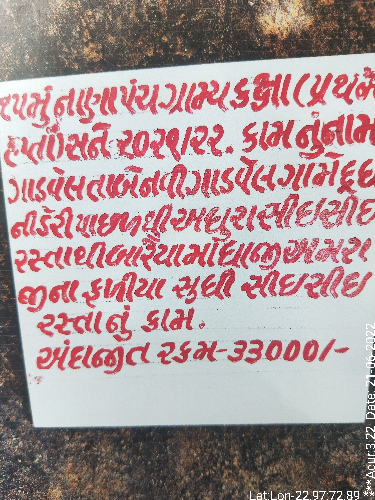 ૧૫મું નાણાપંચ ગ્રામ્ય કક્ષા (પ્રથમ
હપ્તો) સને ૨૦૨૧/૨૨. કામ નું નામ
ગાડવેલ તાબે નવી ગાડવેલ ગામે દૂધ
ની ડેરી પાછળથી અધુરા સીસી
રસ્તાથી બારૈયા માધાજી અમરા
જીના ફળીયા સુધી સીસી
રસ્તાનું કામ.
અંદાજીત રકમ-૩૩૦૦૦/-
Lat:Lon-22.97:72.89
***Acur:3.22 Date: 21-06-2022